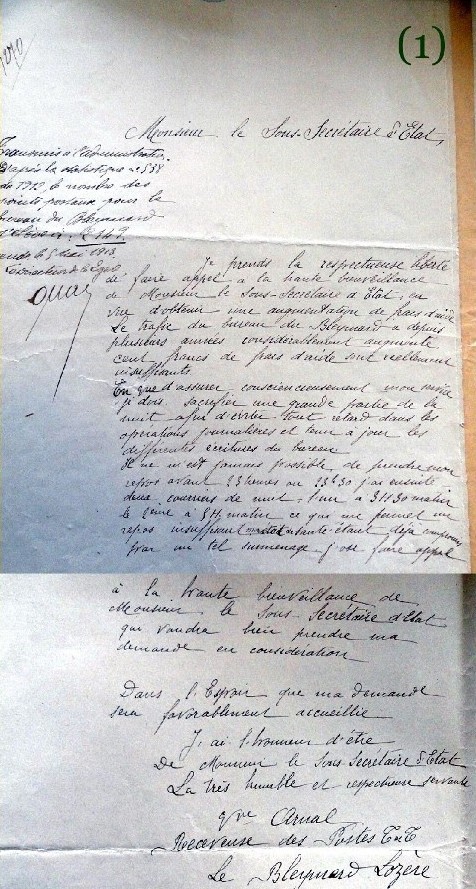 (1)
Monsieur le Sous-Secrétaire d'Etat,
Transmis à l'administration.
D'après la statistique n° 538
de 1912, le nombre des
points postaux pour le
bureau du Bleymard
s'élève à
mende le 5 Mai 1913
Je prends la respectueuse liberté
de faire appel à la haute bienveillance
de Monsieur le Sous-Secrétaire d'Etat, en
vue d'obtenir une augmentation de frais d'aide
Le trafic du bureau du Bleymard a depuis
plusieurs années considérablement augmenté
cent francs de frais d'aide sont réellement
insuffisants.
En vue d'assurer consciencieusement mon service
je dois sacrifier une grande partie de la
nuit afin d'éviter tout retard dans les
opérations journalières et tenir à jour les
différentes écritures du bureau
Il ne m'est jamais possible de prendre mon
repos avant 23 heures ou 23h30 j'ai ensuite
deux courriers de nuit, l'un à 3h30 matin
le 2ème à 5h matin ce qui me permet un
repos insuffisant ma santé étant déjà compromise
par un tel surmenage j'ose faire appel
à la haute bienveillance de
Monsieur le Sous Secrétaire d'Etat
qui voudra bien prendre ma
demande en considération
Dans l'Espoir que ma demande
sera favorablement accueillie
J'ai l'honneur d'être
De Monsieur le Sous Secrétaire d'Etat
La très humble et respectueuse servante
Arnal
Receveuse des Postes T et T
Le Bleymard Lozère